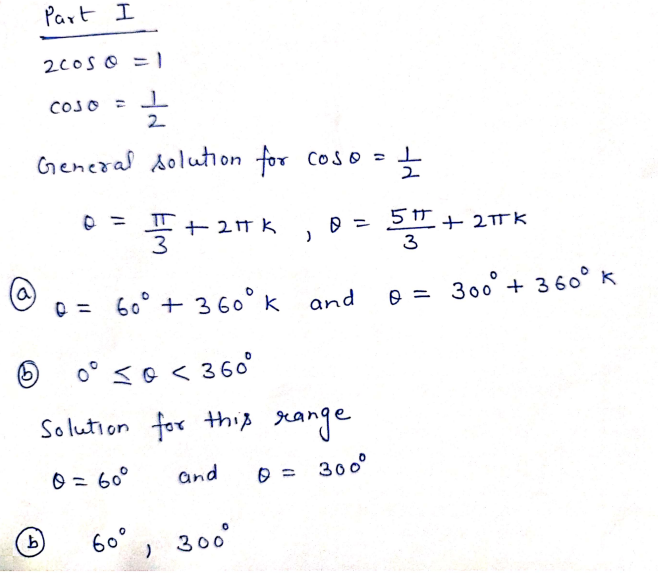 Part I
2cos θ = 1
cosθ = 1/2
General solution for cosθ = 1/2
θ = π/3 + 2πk , θ = 5π/3 + 2πk
(a) θ = 60° + 360° k and θ = 300° + 360° k
(b) 0° ≤ θ < 360°
Solution for this range
θ = 60° and θ = 300°
(b) 60° , 300°